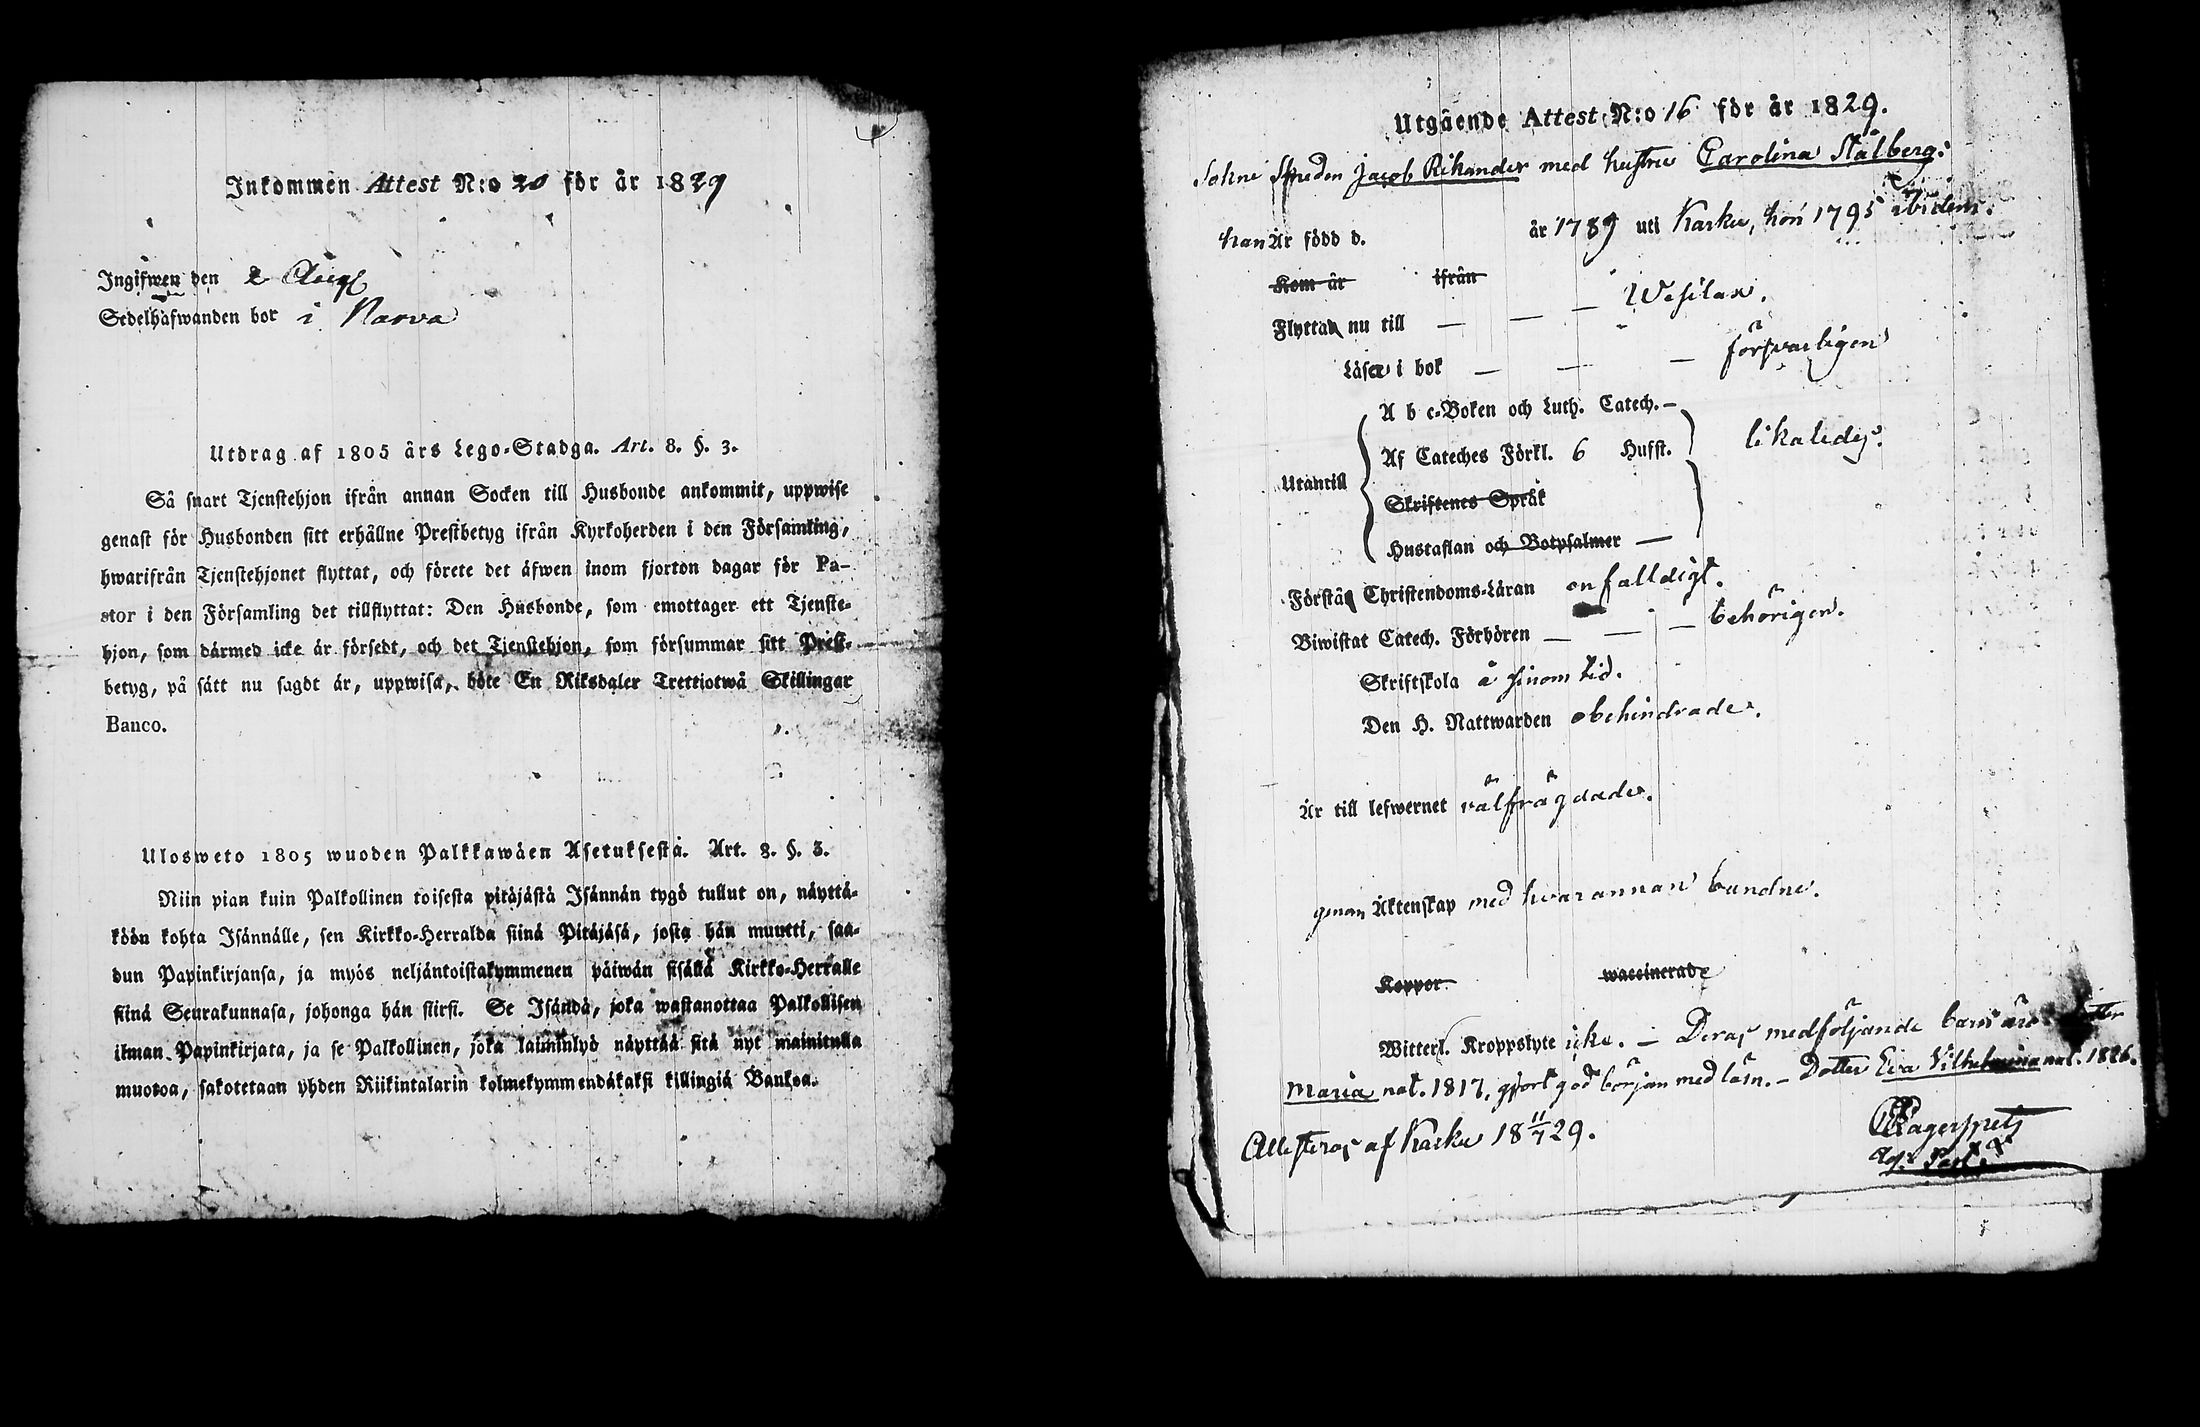 Inkommen Attest N:o 20 för år 1829
Ingifwen den 2 Aug
Sedelhafwanden bor i Narva
Utdrag af 1805 års Lego-Stadga. Art. 8. §. 3.
Så snart Tjenstehjon ifrån annan Socken till Husbonde ankommit, uppwise
genast för Husbonden sitt erhållne Prestbetyg ifrån Kyrkoherden i den Församling,
hwarifrån Tjenstehjonet flyttat, och förete det äfwen inom fjorton dagar för Pa-
stor i den Församling det tillflyttat: Den Husbonde, som emottager ett Tjenste-
hjon, som därmed icke är försedt, och det Tjenstehjon, som försummar sitt Prest-
betyg, på sätt nu sagdt är, uppwisa, böte En Riksdaler Trettiotwå Skillingar
Banco.
Ulosweto 1805 wuoden Palkkawäen Asetuksesta. Art. 8. §. 3.
Niin pian kuin Palkollinen toisesta pitäjästä Isännän tygö tullut on, näyttä-
köön kohta Isännälle, sen Kirkko-Herralda siinä Pitäjäsä, josta hän muutti, saa-
dun Papinkirjansa, ja myös neljäntoistakymmenen päiwän sisällä Kirkko-Herralle
siinä Seurakunnasa, johonga hän siirsi. Se Isändä, joka wastanottaa Palkollisen
ilman Papinkirjata, ja se Palkollinen, joka laiminlyö näyttää sitä nyt mainitulla
muotoa, sakotetaan yhden Riikintalarin kolmekymmendäkaksi killingiä Bankoa.
Utgående Attest N:o 16 för år 1829.
Sokne Smeden Jacob Rikander med hustru Carolina Stålberg:
han Är född d. år 1789 uti Karku, hon 1795 ibidem.
Kom år ifrån
Flytta nu till — — — Wesilax.
Läser i bok — — — försvarligen
A b c-Boken och Luth. Catech. —
Utantill Af Cateches Förkl. 6 Hufst. likaledes.
Skriftenes Språk
Hustaflan och Botpsalmer —
Förstå Christendoms-Läran enfalldigt.
Biwistat Catech. Förhören — — — behörigen.
Skriftskola å sinom tid.
Den H. Nattwarden obehindrade.
Är till lefwernet välfrägdade.
genom Äktenskap med hvarannan bundne.
Koppor waccinerade
Witterl. Kroppslyte icke. — Deras medföljande barn äro Dotter
Maria nat. 1817, gjort god början med läsn. — Dotter Eva Vilhelmina nat. 1826.
Attesteras af Karku 18 11/7 29.